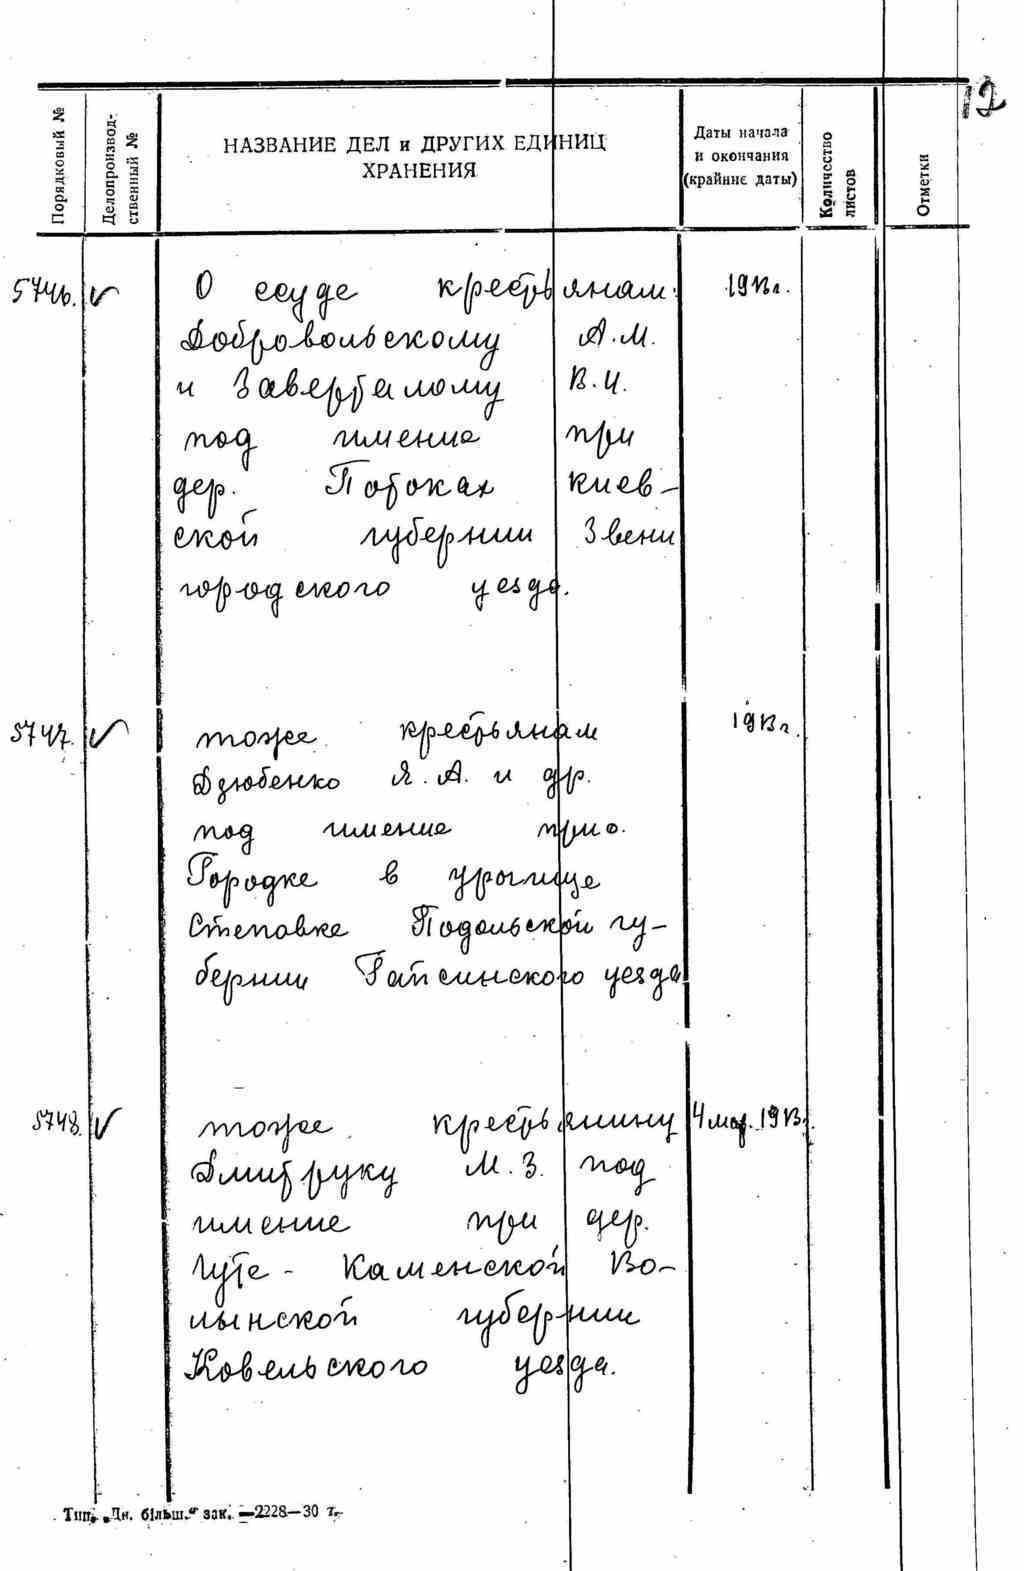 12
Порядковый №
Делопроизвод-
ственный №
НАЗВАНИЕ ДЕЛ и ДРУГИХ ЕДИНИЦ
ХРАНЕНИЯ
Даты начала
и окончания
(крайние даты)
Количество
листов
Отметки
5746. ✓ О ссуде крестьянам: 1913г.
Добровольскому А.М.
и Заверталому В.И.
под имение при
дер. Потоках Киев-
ской губернии Звени
городского уезда.
5747. ✓ тоже крестьянам 1913г.
Дзюбенко Я.А. и др.
под имение при с.
Городке в урочище
Степовке Подольской гу-
бернии Гайсинского уезда
5748. ✓ тоже крестьянину 4 мар. 1913г.
Дмитруку М.З. под
имение при дер.
Гуте-Каменской Во-
лынской губернии
Ковельского уезда.
Тип. „Дн. більш.“ зак. —2228—30 т.